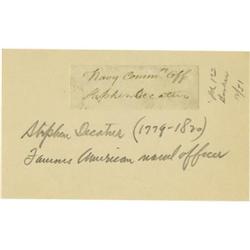 Navy Commrs Off
Stephen Decatur
Stephen Decatur (1779-1820)
Famous American naval officer